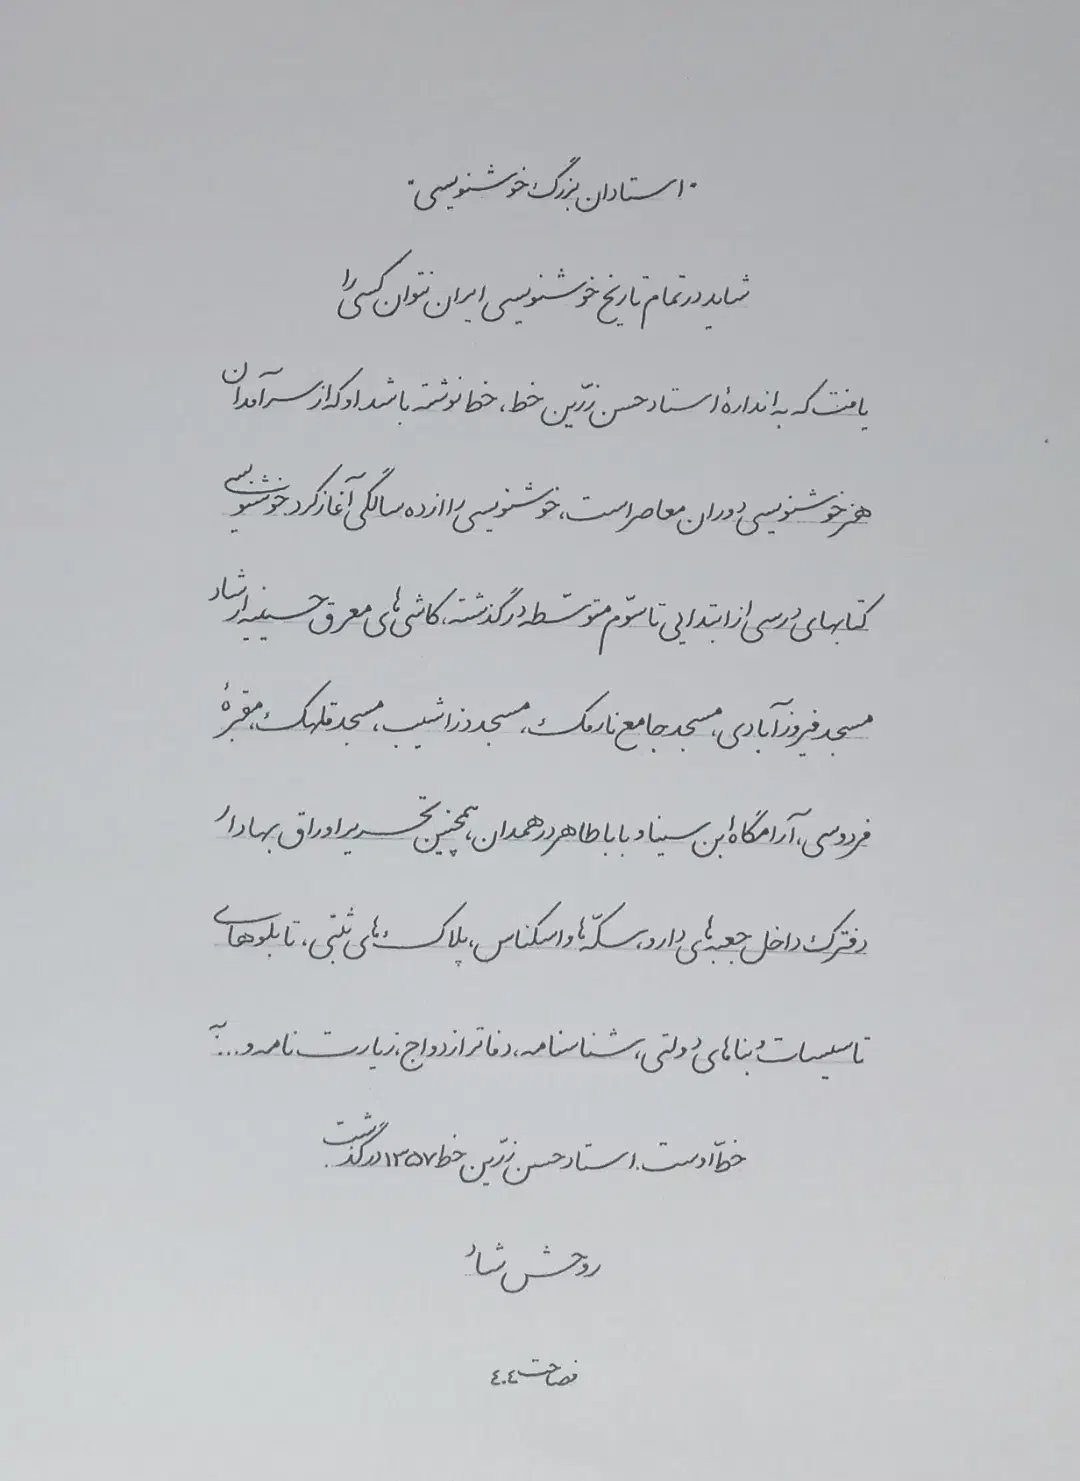 "استادان بزرگ خوشنویسی"
شاید در تمام تاریخ خوشنویسی ایران نتوان کسی را
یافت که به اندازهٔ استاد حسن زرّین خط، خط نوشته باشد او که از سرآمدان
هنر خوشنویسی دوران معاصر است، خوشنویسی را از ده سالگی آغاز کرد خوشنویسی
کتابهای درسی از ابتدایی تا سوّم متوسّطه در گذشته، کاشی‌های معرق حسینیه ارشاد
مسجد فیروزآبادی، مسجد جامع نارمک، مسجد دزاشیب، مسجد قلهک، مقبرهٔ
فردوسی، آرامگاه ابن سینا و باباطاهر در همدان، همچنین تحریر اوراق بهادار
دفترک داخل جعبه‌های دارو، سکّه‌ها و اسکناس، پلاک‌های ثبتی، تابلوهای
تاسیسات و بناهای دولتی، شناسنامه، دفاتر ازدواج، زیارت نامه و... به
خطّ اوست. استاد حسن زرّین خط ۱۳۵۷ درگذشت.
روحش شاد
فصاحت ٤٠٤